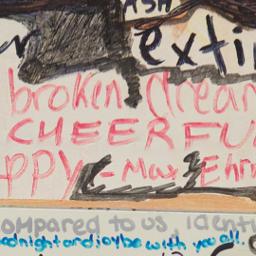 ASH
er extin
broken drean
CHEERFU
PPY - Max Ehrn
ompared to us identi
odnight and joy be with you all.